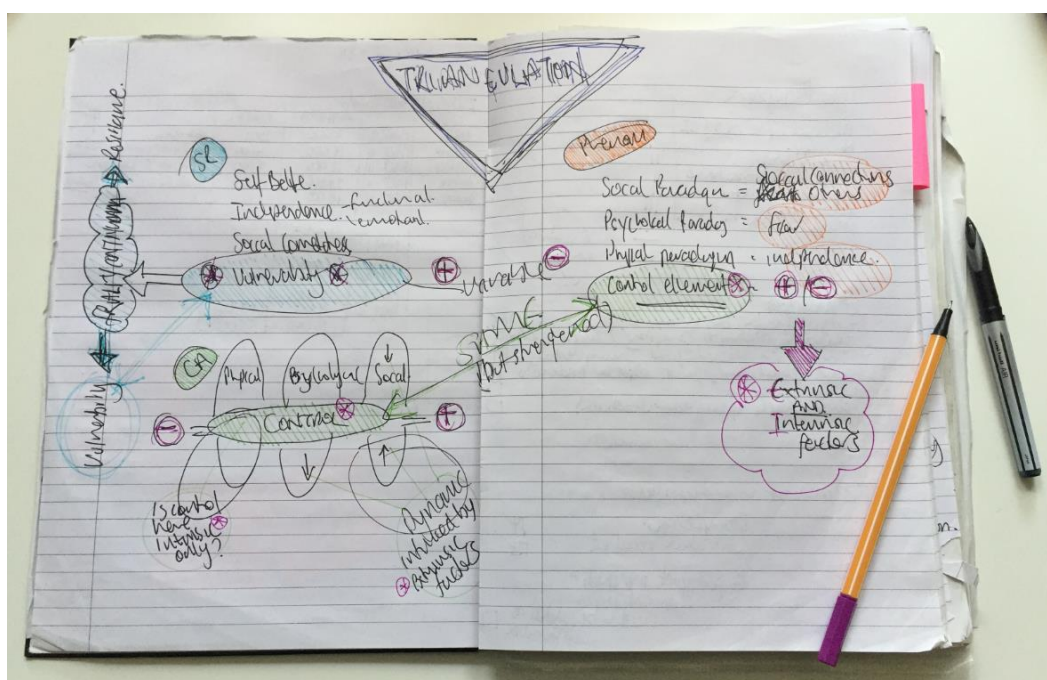 TRIANGULATION
Resilience.
FRAILTY CONTINUUM
Vulnerability
SR
Self Belie.
Independence - functional.
- emotional.
Social Connectedness
Vulnerability
+
Variable
-
CA
Physical
Social
- CONTROL +
Is control
here
intrinsic
only?
Dynamic
influenced by
Extrinsic
factors
SAME
(but strengthened)
Phenom
Social Paradigm = Social Connections
others
Psychological Paradigm = fear
Physical paradigm = independence.
Control element = + / -
Extrinsic
AND
Intrinsic
factors